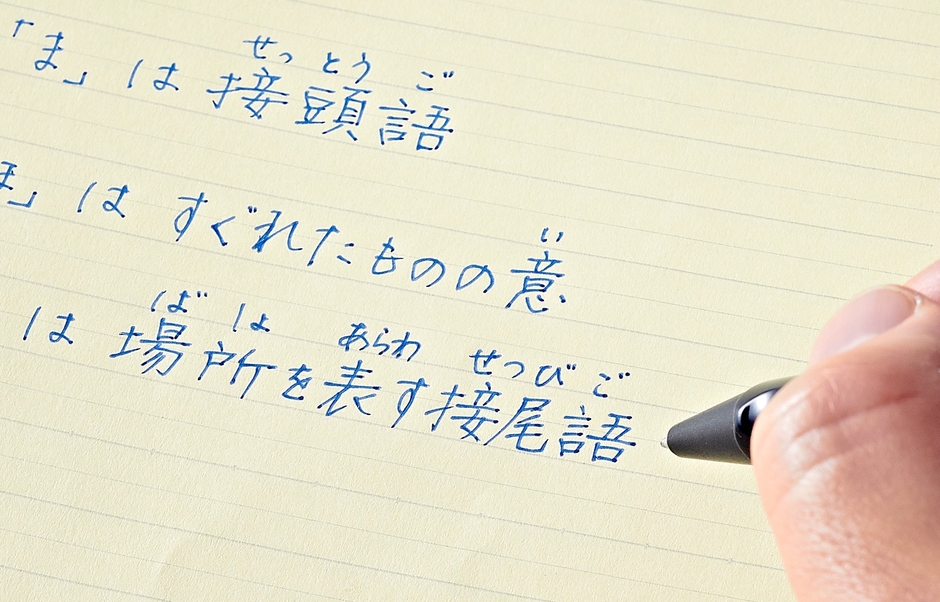 「ま」は接頭語
せっとうご
ほ」はすぐれたものの意
い
は場所を表す接尾語
ばしょ あらわ せつびご